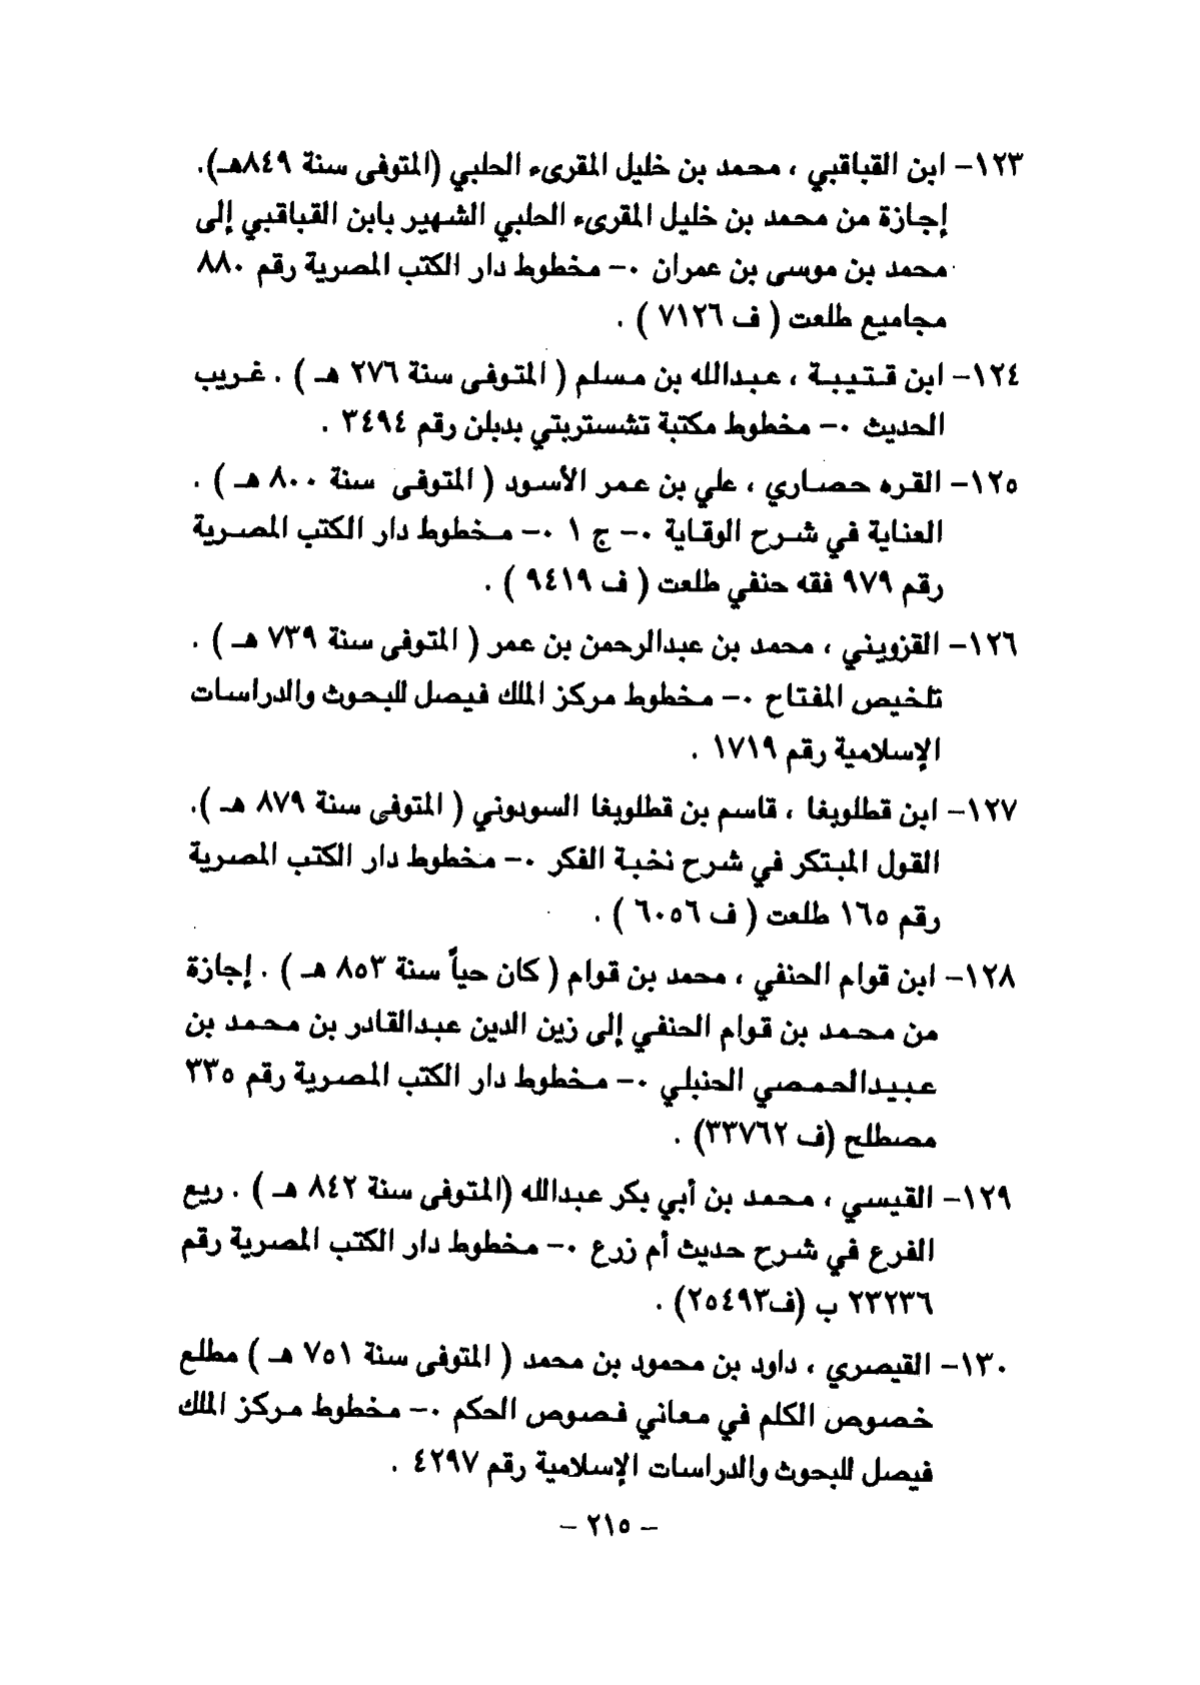 ١٢٣- ابن القباقبي ، محمد بن خليل المقرىء الحلبي (المتوفى سنة ٨٤٩هـ).
إجازة من محمد بن خليل المقرىء الحلبي الشهير بابن القباقبي إلى
محمد بن موسى بن عمران ٠- مخطوط دار الكتب المصرية رقم ٨٨٠
مجاميع طلعت ( ف ٧١٢٦ ) .
١٢٤- ابن قتيبة ، عبدالله بن مسلم ( المتوفى سنة ٢٧٦ هـ ) . غريب
الحديث ٠- مخطوط مكتبة تشستربتي بدبلن رقم ٣٤٩٤ .
١٢٥- القره حصاري ، علي بن عمر الأسود ( المتوفى سنة ٨٠٠ هـ ) .
العناية في شرح الوقاية ٠- ج ١ ٠- مخطوط دار الكتب المصرية
رقم ٩٧٩ فقه حنفي طلعت ( ف ٩٤١٩ ) .
١٢٦- القزويني ، محمد بن عبدالرحمن بن عمر ( المتوفى سنة ٧٣٩ هـ ) .
تلخيص المفتاح ٠- مخطوط مركز الملك فيصل للبحوث والدراسات
الإسلامية رقم ١٧١٩ .
١٢٧- ابن قطلوبغا ، قاسم بن قطلوبغا السودوني ( المتوفى سنة ٨٧٩ هـ ).
القول المبتكر في شرح نخبة الفكر ٠- مخطوط دار الكتب المصرية
رقم ١٦٥ طلعت ( ف ٦٠٥٦ ) .
١٢٨- ابن قوام الحنفي ، محمد بن قوام ( كان حياً سنة ٨٥٣ هـ ) . إجازة
من محمد بن قوام الحنفي إلى زين الدين عبدالقادر بن محمد بن
عبيدالحمصي الحنبلي ٠- مخطوط دار الكتب المصرية رقم ٣٣٥
مصطلح (ف ٣٣٧٦٢) .
١٢٩- القيسي ، محمد بن أبي بكر عبدالله (المتوفى سنة ٨٤٢ هـ ) . ريع
الفرع في شرح حديث أم زرع ٠- مخطوط دار الكتب المصرية رقم
٢٣٢٣٦ ب (ف٢٥٤٩٣) .
١٣٠- القيصري ، داود بن محمود بن محمد ( المتوفى سنة ٧٥١ هـ ) مطلع
خصوص الكلم في معاني فصوص الحكم ٠- مخطوط مركز الملك
فيصل للبحوث والدراسات الإسلامية رقم ٤٢٩٧ .
- ٢١٥ -